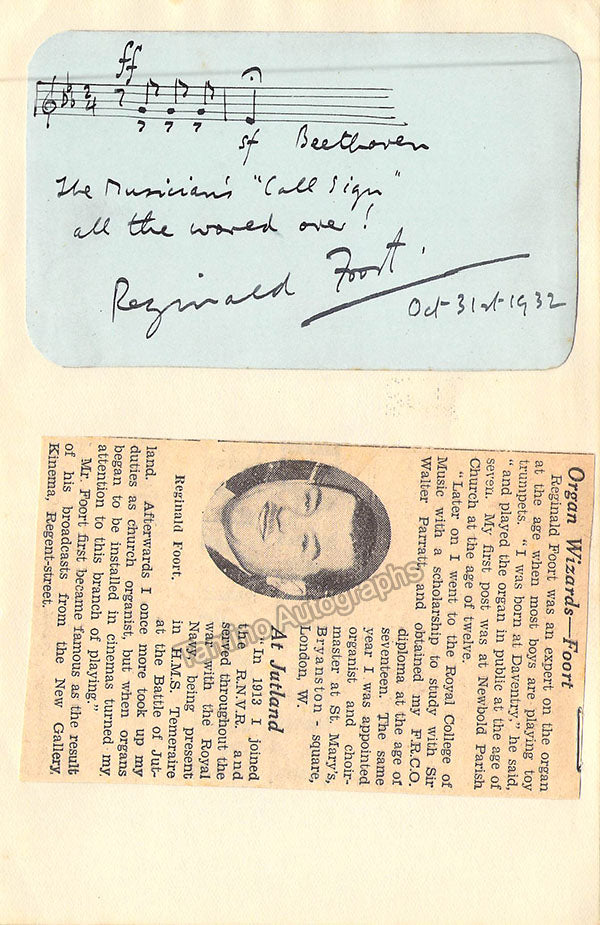 ff
2
4
sf Beethoven
The Musician's "Call Sign"
all the world over!
Reginald Foort.
Oct 31st 1932
Organ Wizards—Foort
Reginald Foort was an expert on the organ
at the age when most boys are playing toy
trumpets. "I was born at Daventry," he said,
"and played the organ in public at the age of
seven. My first post was at Newbold Parish
Church at the age of twelve.
"Later on I went to the Royal College of
Music with a scholarship to study with Sir
Walter Parratt, and obtained my F.R.C.O.
diploma at the age of
seventeen. The same
year I was appointed
organist and choir-
master at St. Mary's,
Bryanston-square,
London, W.
At Jutland
"In 1913 I joined
the R.N.V.R. and
served throughout the
war with the Royal
Navy, being present
in H.M.S. Temeraire
at the Battle of Jut-
Reginald Foort.
land. Afterwards I once more took up my
duties as church organist, but when organs
began to be installed in cinemas turned my
attention to this branch of playing."
Mr. Foort first became famous as the result
of his broadcasts from the New Gallery
Kinema, Regent-street.
Tamino Autographs